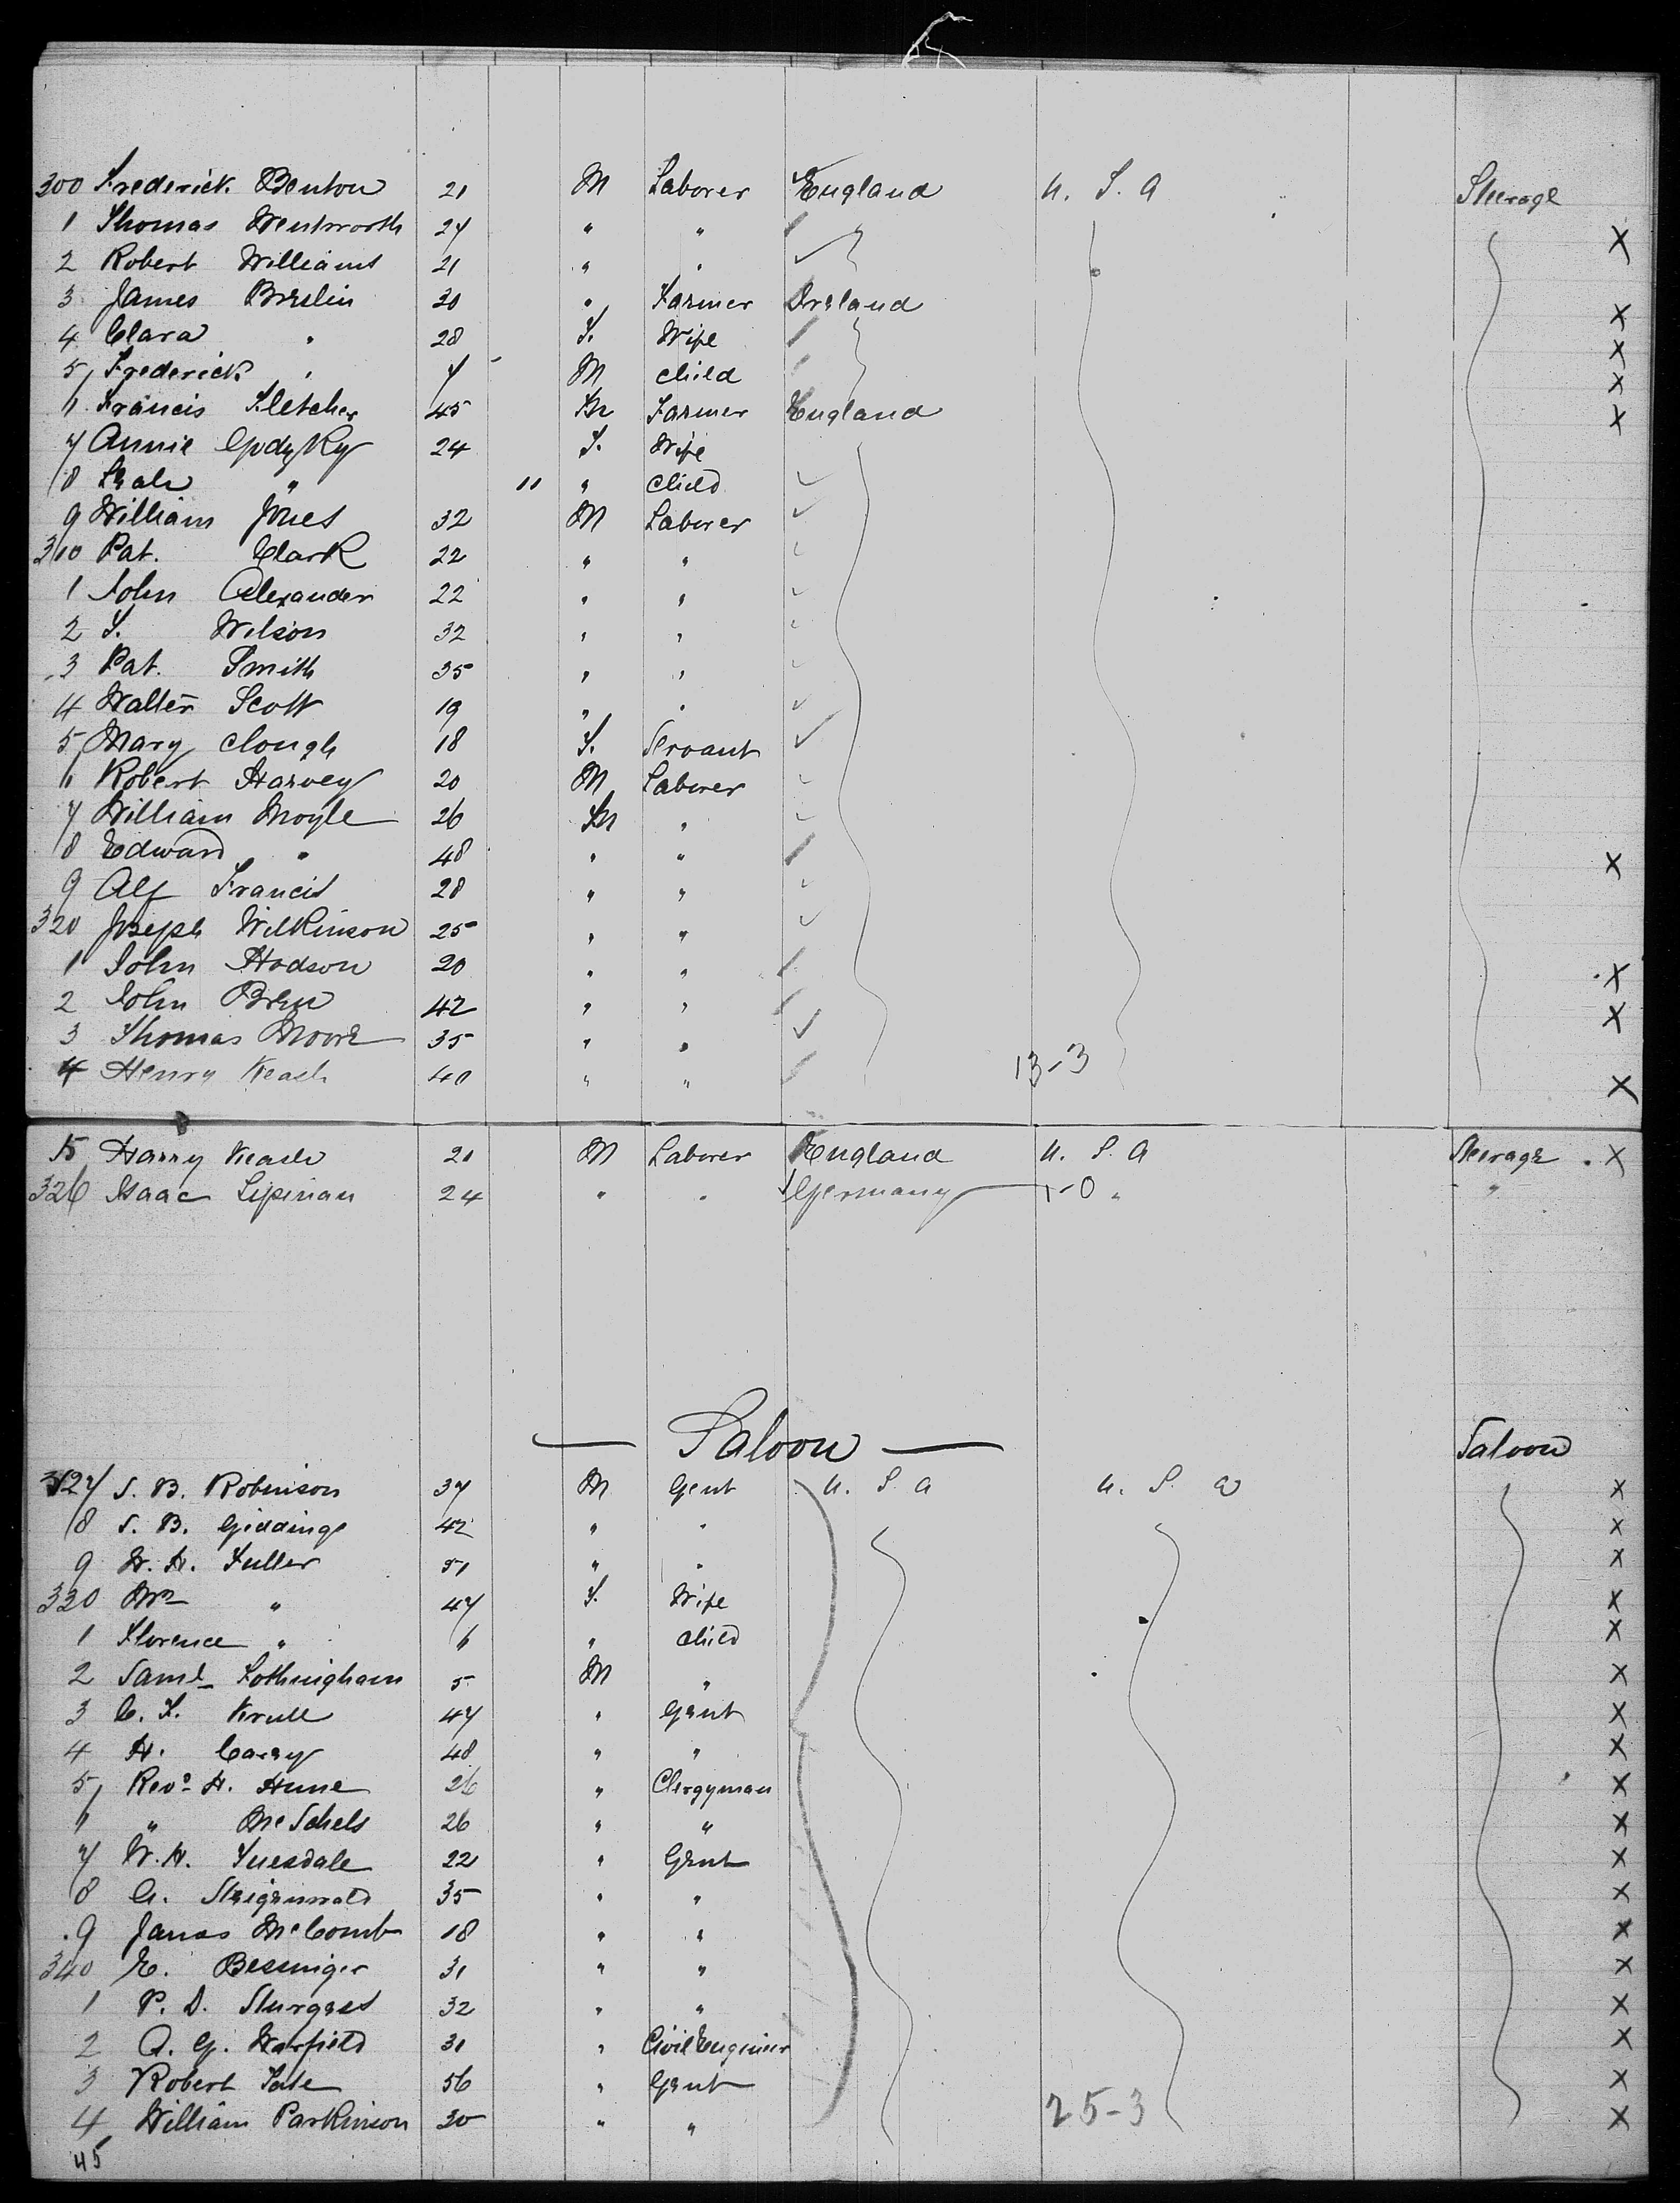 300 Frederick Benton 21 M Laborer England U. S. A Steerage
1 Thomas Wentworth 24 " " X
2 Robert Williams 21 " "
3 James Breslin 30 " Farmer Ireland X
4 Clara " 28 F. Wife X
5 Frederick " 4 M child X
6 Francis Fletcher 45 M Farmer England X
7 Annie 24 F. Wife
8 Leah " 11 " child
9 William Jones 32 M Laborer
310 Pat. Clark 22 " "
1 John Alexander 22 " "
2 T. Wilson 32 " "
3 Pat. Smith 35 " "
4 Walter Scott 19 " "
5 Mary Clough 18 F. Servant
6 Robert Harvey 20 M Laborer
7 William Moyle 26 M "
8 Edward " 48 " " X
9 Alf Francis 28 " "
320 Joseph Wilkinson 25 " "
1 John Hodson 20 " " X
2 John Bren 42 " " X
3 Thomas Moore 35 " "
4 Henry Keach 40 " " 13-3 X
5 Harry Keach 21 M Laborer England U. S. A Steerage X
326 Isaac Lipman 24 " " Germany 1-0 " "
Saloon
Saloon
327 S. B. Robinson 37 M Gent U. S. A U. S. a X
8 S. B. Giddings 42 " " X
9 W. H. Fuller 51 " " X
330 Mrs " 47 F. Wife X
1 Florence " 6 " child X
2 Saml Fothringham 5 M " X
3 C. F. Krull 47 " Gent X
4 H. Carey 48 " " X
5 Revd H. Hune 26 " Clergyman X
6 " McSchels 26 " " X
7 W. H. Truesdale 22 " Gent X
8 G. Steigerwald 35 " " X
9 James McComb 18 " " X
340 E. Bessinger 31 " " X
1 P. D. Sturgess 32 " " X
2 A. G. Warfield 31 " Civil Engineer X
3 Robert Tate 56 " Gent X
4 William Parkinson 30 " " 25-3 X
45